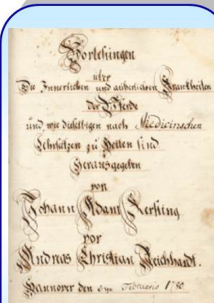 Vorlesungen
über
Die Innerlichen und äußerlichen Krankheiten
der Pferde
und wie dieselbigen nach Medicinischen
Lehrsätzen zu Heilen sind
Herausgegeben
von
Johann Adam Kersting
vor
Andreas Christian Reichhardt.
Hannover den Februario 1780